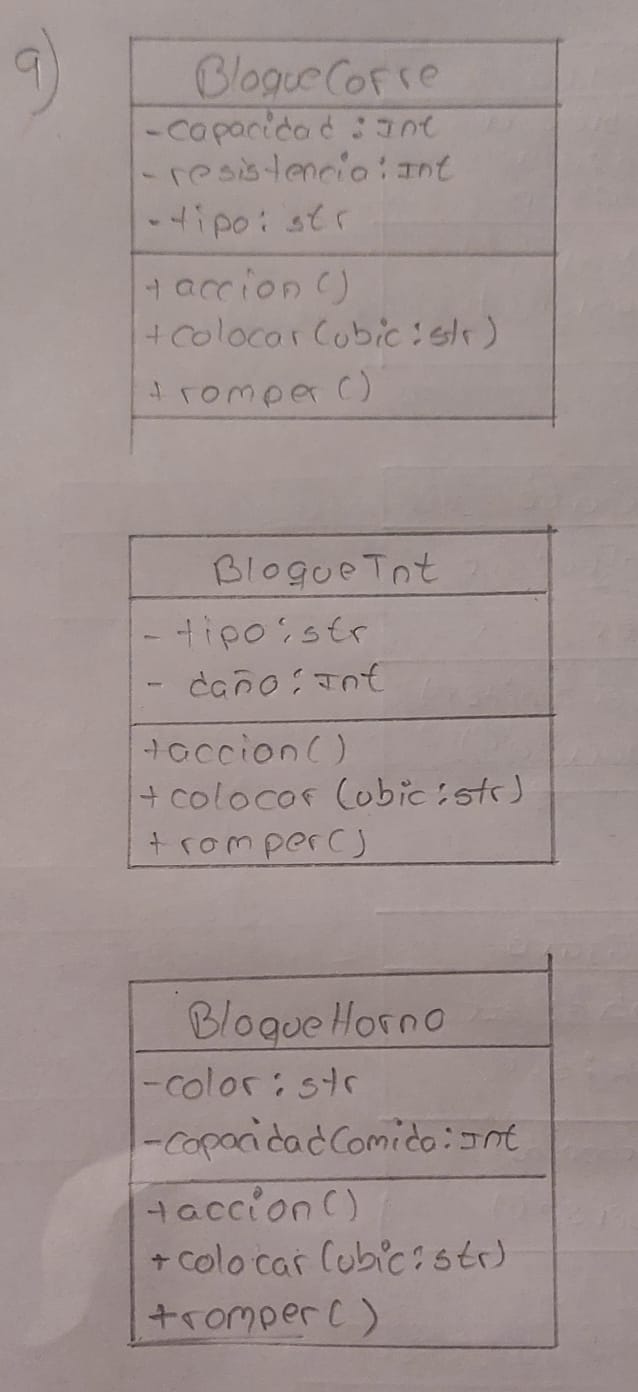 a)
BloqueCofre
-capacidad : Int
-resistencia : Int
-tipo : str
+accion()
+colocar(ubic : str)
+romper()
BloqueTnt
- tipo : str
- daño : Int
+accion()
+colocar(ubic : str)
+romper()
BloqueHorno
-color : str
-capacidadComida : Int
+accion()
+colocar(ubic : str)
+romper()